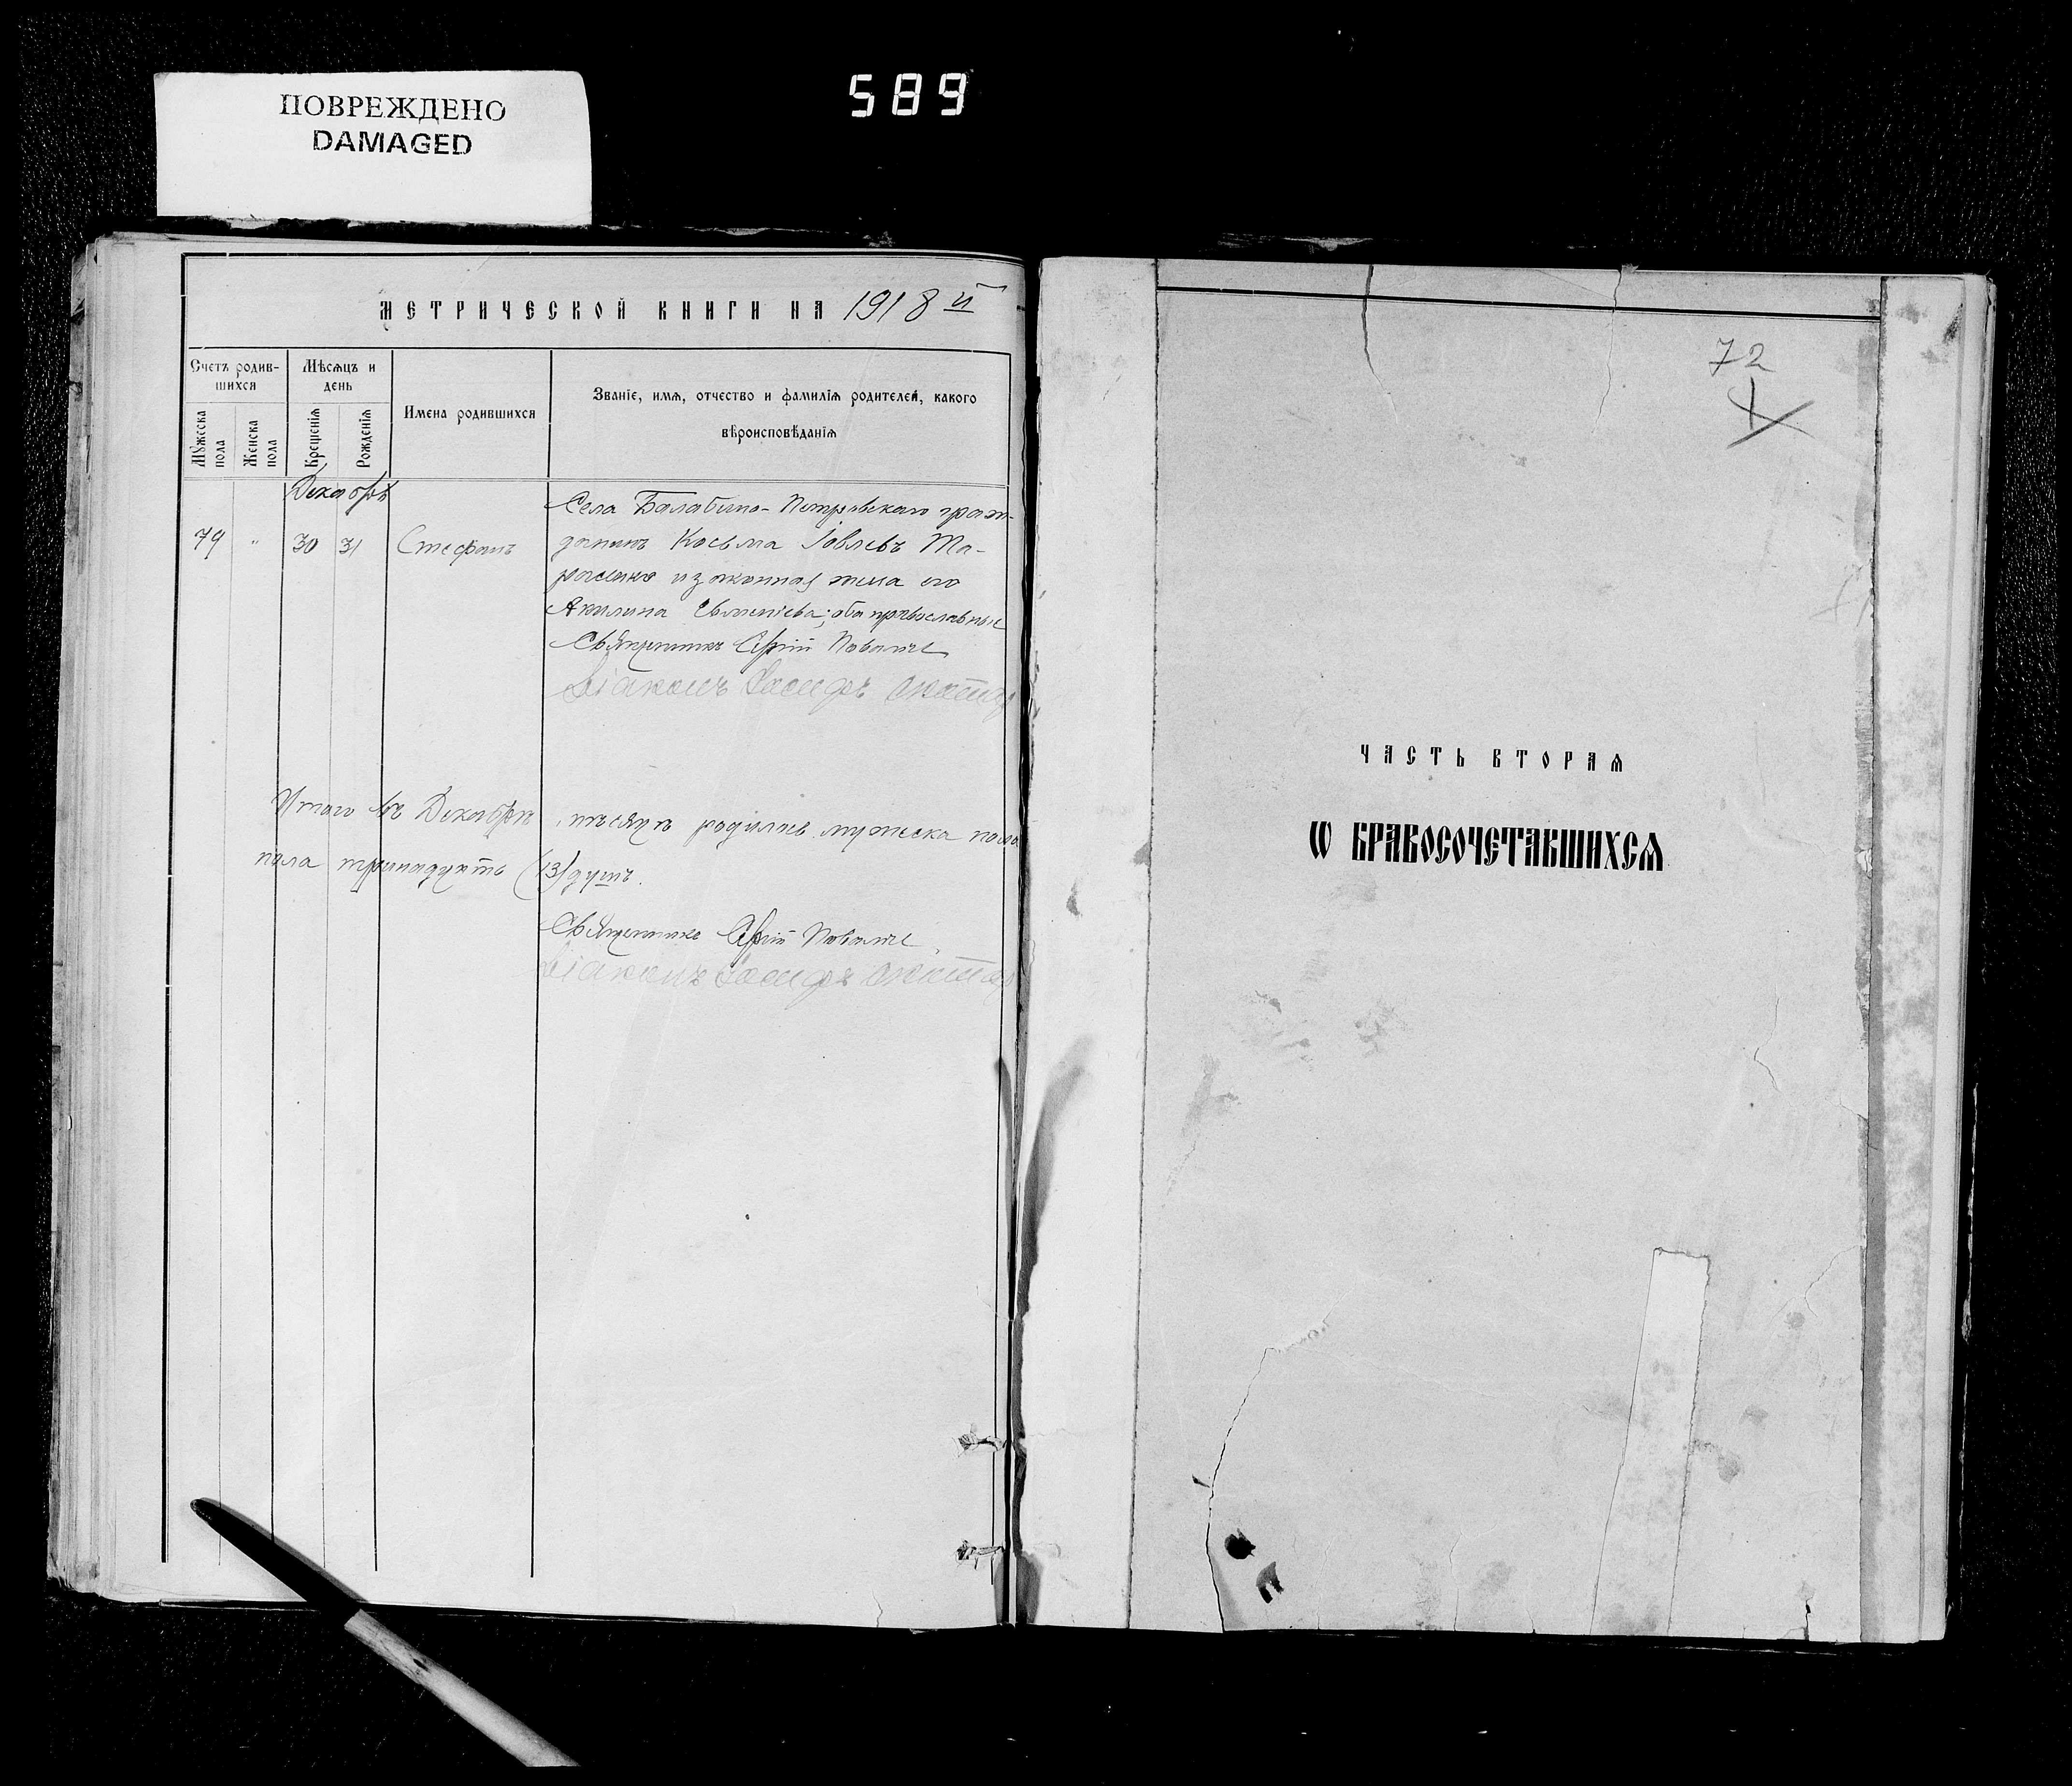 ПОВРЕЖДЕНО
DAMAGED
589
МЕТРИЧЕСКОЙ КНИГИ НА 1918 й
Счетъ родив-
шихся
Мѣсяцъ и
день
Имена родившихся
Званіе, имя, отчество и фамилія родителей, какого
вѣроисповѣданія
Мужеска
пола
Женска
пола
Крещенія
Рожденія
Декабрь
79 " 30 31 Стефанъ
Села Балабино-Петровскаго граж-
данинъ Косьма Іовлевъ Та-
и законная жена его
Акилина Евменіева; оба православные
Священникъ Сергій
Діаконъ Іосифъ
Итого въ Декабрѣ мѣсяцѣ родилось мужеска пола
пола тринадцать (13) душъ.
Священникъ Сергій
Діаконъ Іосифъ
72
ЧАСТЬ ВТОРАЯ
Ѡ БРАКОСОЧЕТАВШИХСЯ